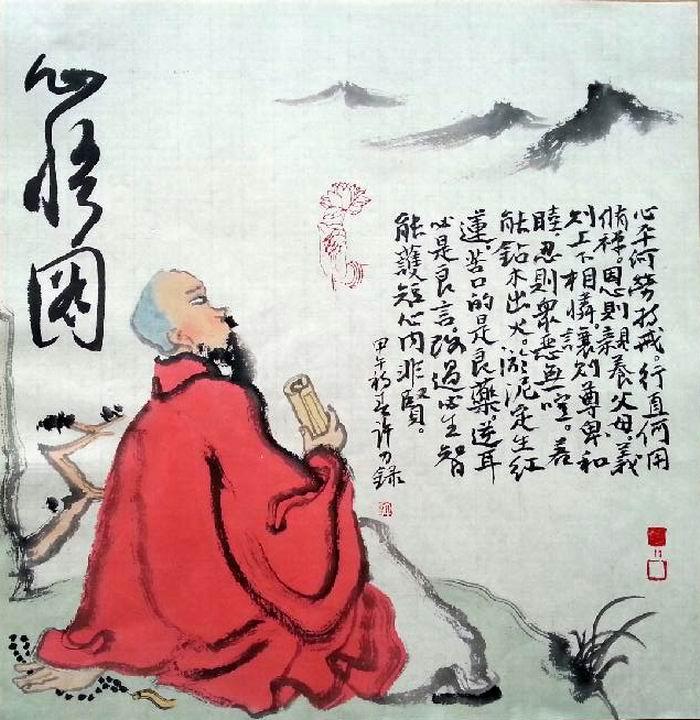 心悟图
心平何勞持戒。行直何用
脩禪。恩則親養父母。義
則上下相憐。讓則尊卑和
睦。忍則衆惡無喧。若
能鉆木出火。淤泥定生紅
蓮。苦口的是良藥。逆耳
必是良言。改過必生智
慧護短心内非賢。
甲午初春许刀録